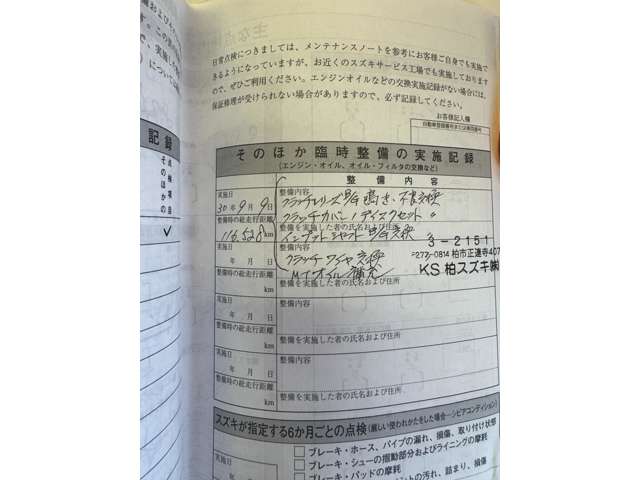 日常点検につきましては、メンテナンスノートを参考にお客様ご自身でも実施で
きるようになっていますが、お近くのスズキサービス工場でも実施しております
ので、ぜひご利用ください。エンジンオイルなどの交換実施記録がない場合には、
保証修理が受けられない場合がありますので、必ず記録してください。
お客様記入欄
自動車登録番号または車両番号
そのほか臨時整備の実施記録
(エンジン・オイル、オイル・フィルタの交換など)
整備内容
実施日
30年9月9日
整備内容
クラッチレリーズB/G鳴き、交換
クラッチカバー/ディスクセット 〃
整備時の総走行距離
116,528km
整備を実施した者の氏名および住所
インプットシャフトB/G交換
実施日
年 月 日
クラッチワイヤ交換
MTオイル補充
3-2151
〒277-0814 柏市正連寺407
KS 柏スズキ㈱
整備時の総走行距離
km
整備を実施した者の氏名および住所
実施日
年 月 日
整備内容
整備時の総走行距離
km
整備を実施した者の氏名および住所
実施日
年 月 日
整備内容
整備時の総走行距離
km
整備を実施した者の氏名および住所
スズキが指定する6か月ごとの点検(厳しい使われかたをした場合―シビアコンディション)
ブレーキ・ホース、パイプの漏れ、損傷、取り付け状態
ブレーキ・シューの摺動部分およびライニングの摩耗
ブレーキ・パッドの摩耗
の汚れ、詰まり、損傷
記録
点検項目
そのほかの